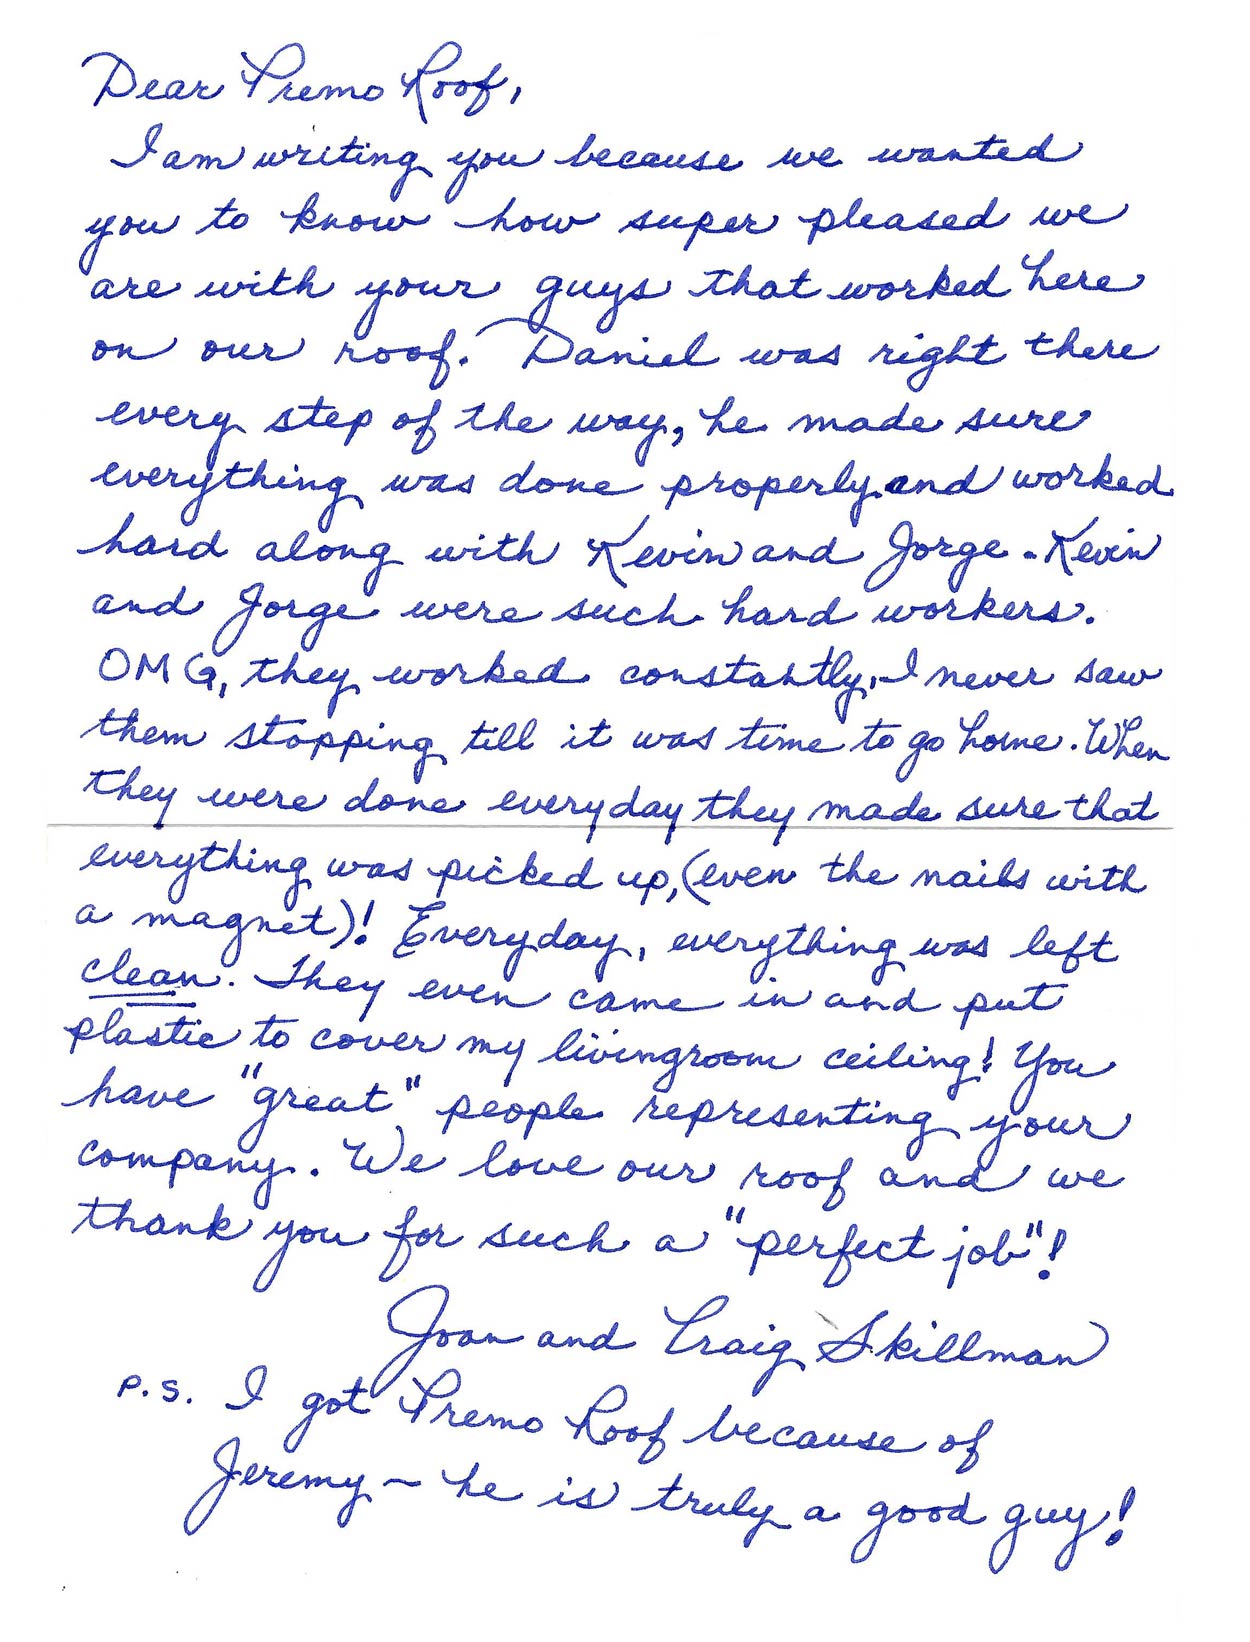 Dear Premo Roof,
I am writing you because we wanted
you to know how super pleased we
are with your guys that worked here
on our roof. Daniel was right there
every step of the way, he made sure
everything was done properly and worked
hard along with Kevin and Jorge. Kevin
and Jorge were such hard workers.
OMG, they worked constantly, I never saw
them stopping till it was time to go home. When
they were done everyday they made sure that
everything was picked up, (even the nails with
a magnet)! Everyday, everything was left
clean. They even came in and put
plastic to cover my livingroom ceiling! You
have "great" people representing your
company. We love our roof and we
thank you for such a "perfect job"!
Joan and Craig Skillman
P.S. I got Premo Roof because of
Jeremy ~ he is truly a good guy!